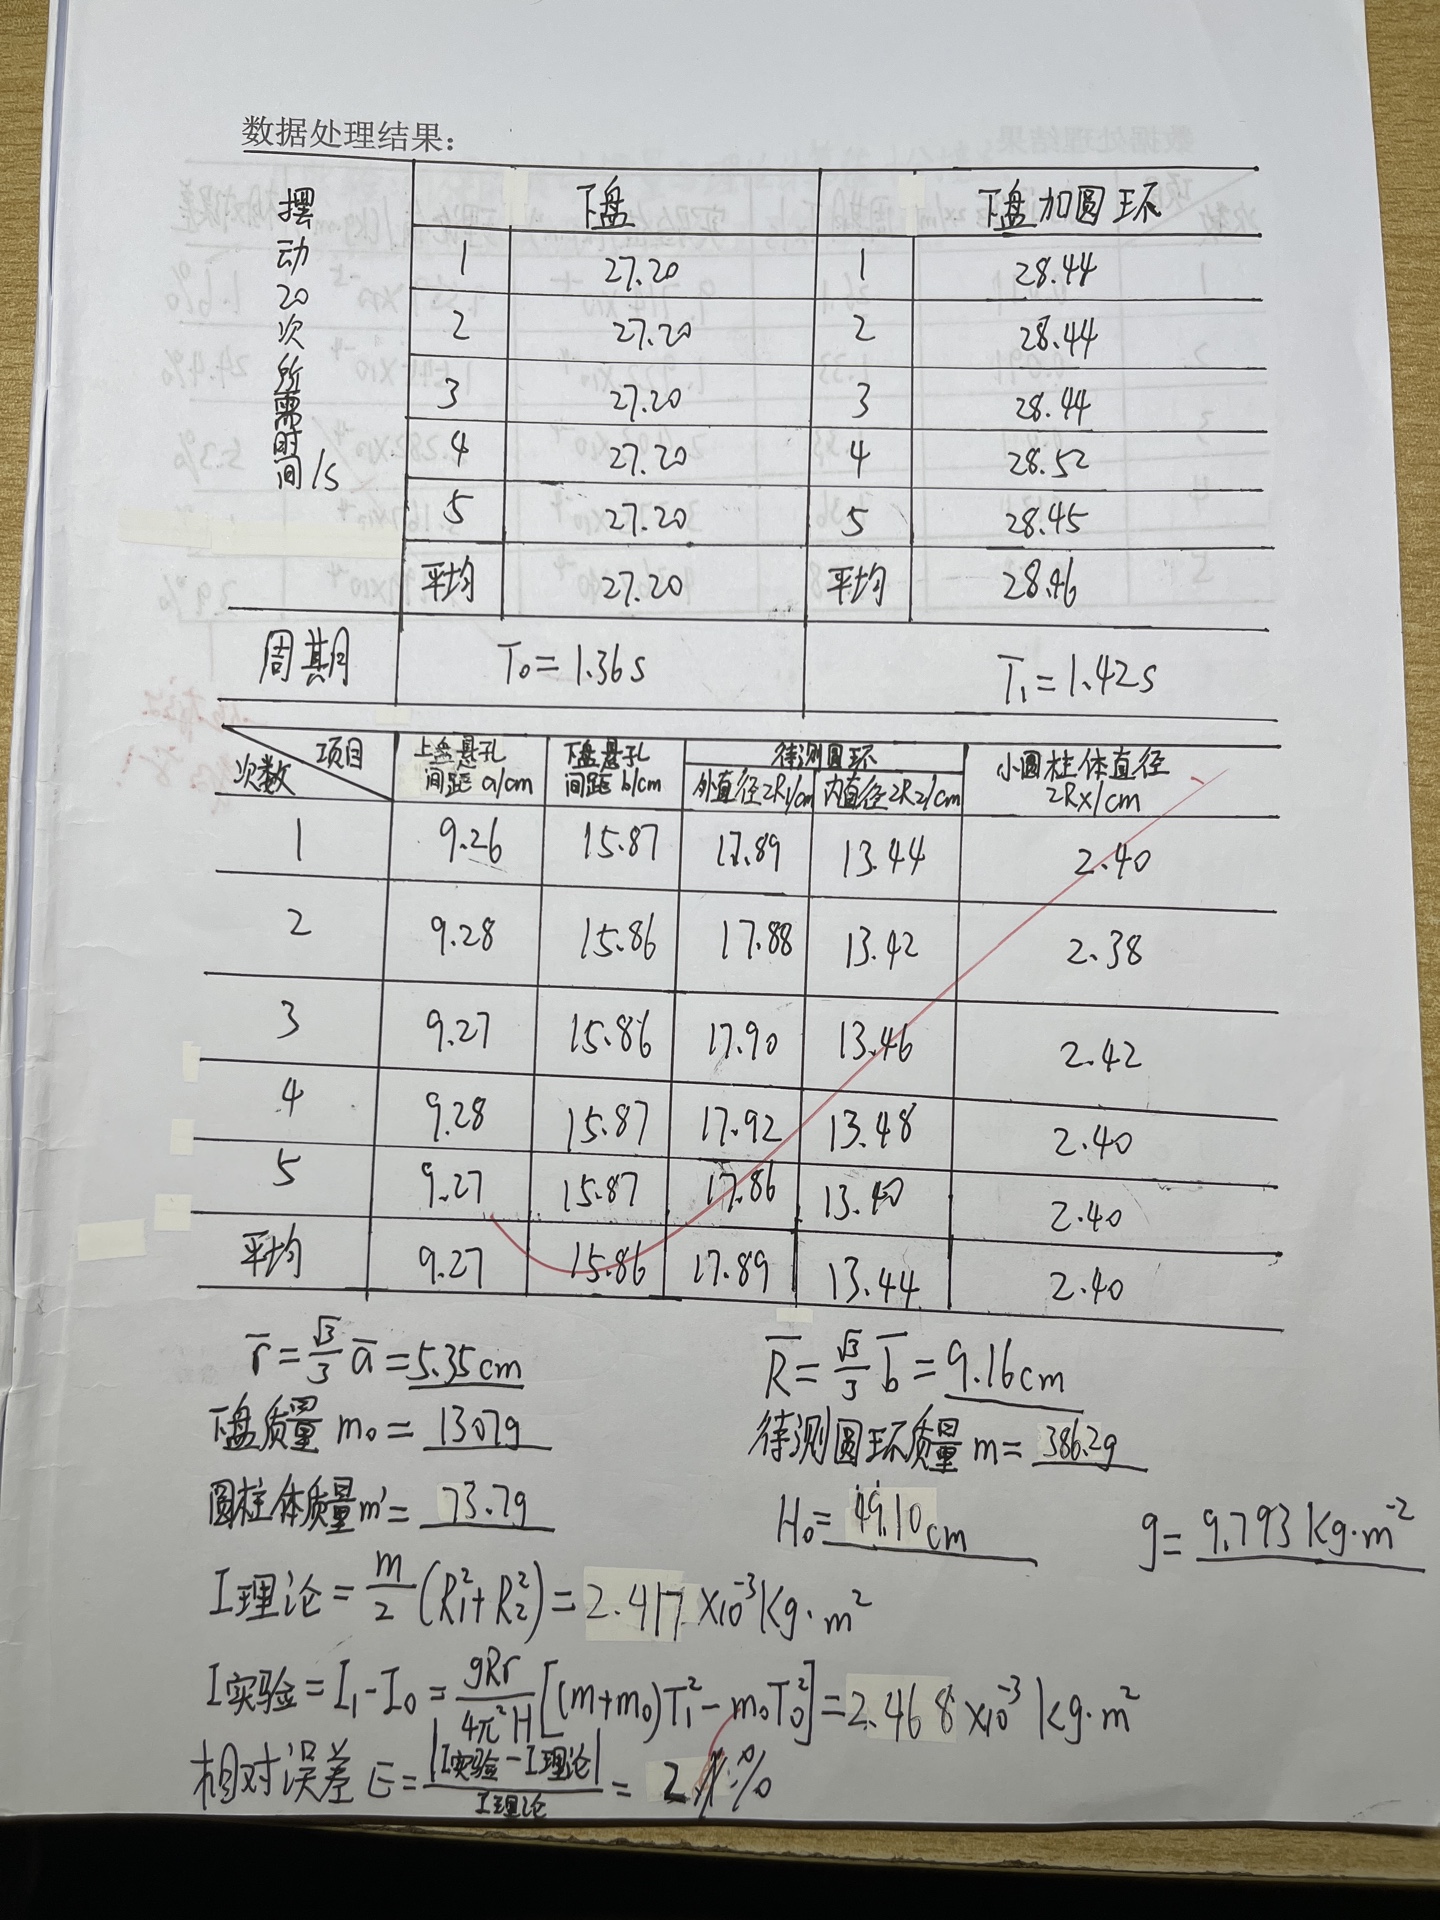 数据处理结果：
摆动20次所需时间/s 下盘 下盘加圆环
1 27.20 1 28.44
2 27.20 2 28.44
3 27.20 3 28.44
4 27.20 4 28.52
5 27.20 5 28.45
平均 27.20 平均 28.46
周期 T₀=1.36s T₁=1.42s
项目 次数 上盘悬孔间距 a/cm 下盘悬孔间距 b/cm 待测圆环 外直径2R₁/cm 内直径2R₂/cm 小圆柱体直径 2Rx/cm
1 9.26 15.87 17.89 13.44 2.40
2 9.28 15.86 17.88 13.42 2.38
3 9.27 15.86 17.90 13.46 2.42
4 9.28 15.87 17.92 13.48 2.40
5 9.27 15.87 17.86 13.40 2.40
平均 9.27 15.86 17.89 13.44 2.40
r̄=√3/3 ā=5.35cm R̄=√3/3 b̄=9.16cm
下盘质量 m₀=1307g 待测圆环质量 m=386.2g
圆柱体质量m'=73.7g H₀=49.10cm g=9.793kg·m⁻²
I理论=m/2(R₁²+R₂²)=2.417×10⁻³kg·m²
I实验=I₁-I₀=gRr/4π²H[(m+m₀)T₁²-m₀T₀²]=2.468×10⁻³kg·m²
相对误差 E=|I实验-I理论|/I理论=2.1%